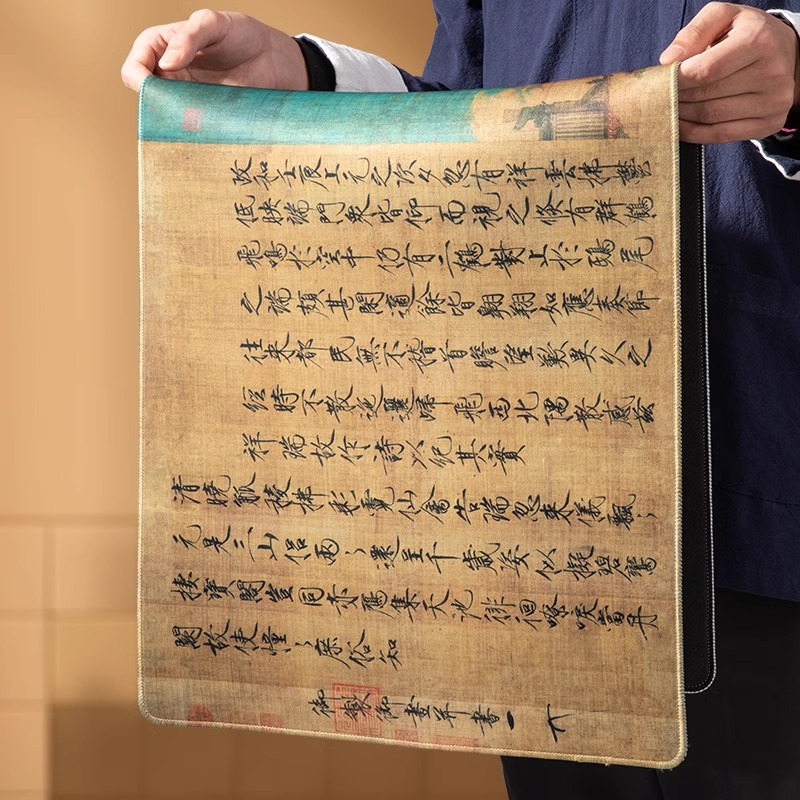 政和壬辰上元之次夕忽有祥雲拂鬱
低映端門眾皆仰而視之倏有群鶴
飛鳴於空中仍有二鶴對止於鴟尾
之端頗甚閑適餘皆翱翔如應奏節
往來都民無不稽首瞻望歎異久之
經時不散迤邐歸飛西北隅散感茲
祥瑞故作詩以紀其實
清曉觚稜拂彩霓仙禽告瑞忽來儀飄々
元是三山侶兩々還呈千歲姿似擬碧鸞
棲寶閣豈同赤鴈集天池徘徊嘹唳當丹
闕故使憧々庶俗知
御製御畫并書